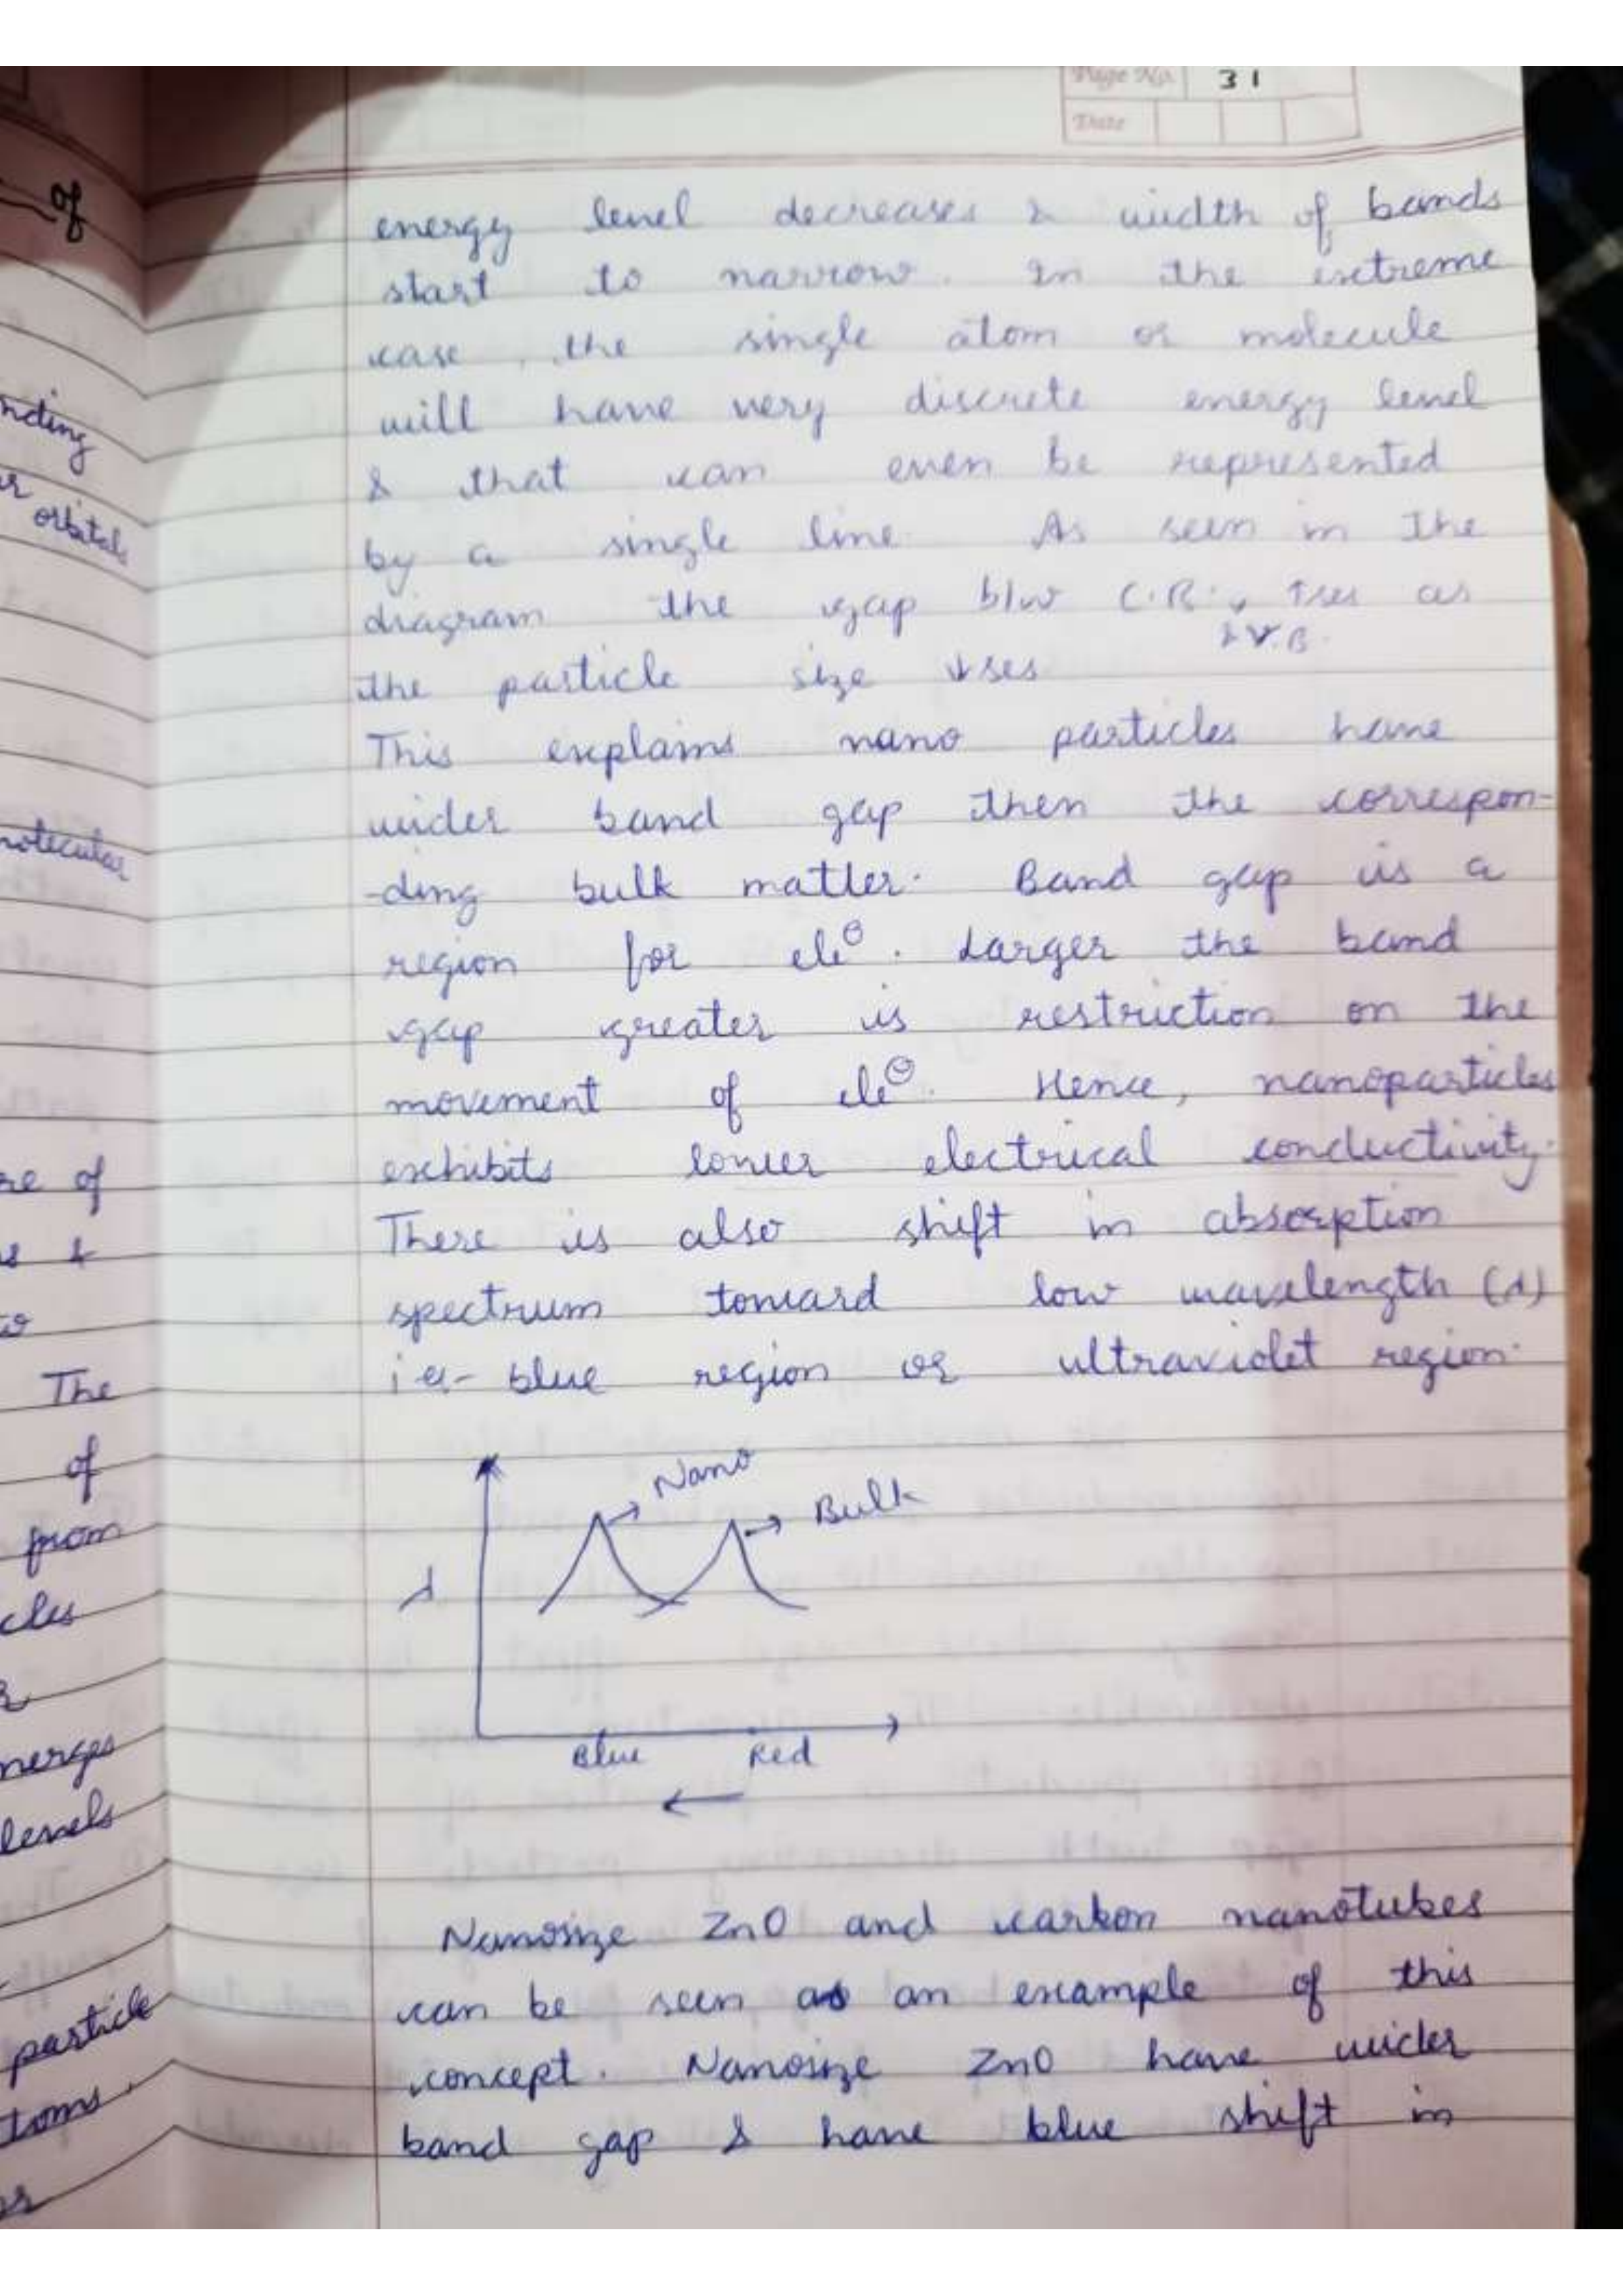 Page No. 31
Date
energy level decreases & width of bands
start to narrow. In the extreme
case, the single atom or molecule
will have very discrete energy level
& that can even be represented
by a single line. As seen in the
diagram the gap b/w C.B. ↑ses as
& V.B.
the particle size ↓ses
This explains nano particles have
wider band gap then the correspon-
-ding bulk matter. Band gap is a
region for ele⊖. Larger the band
gap greater is restriction on the
movement of ele⊖. Hence, nanoparticles
exhibits lower electrical conductivity.
There is also shift in absorption
spectrum toward low wavelength (λ)
i.e- blue region or ultraviolet region.
Nano
Bulk
λ
Blue Red
←
Nanosize ZnO and carbon nanotubes
can be seen as an example of this
concept. Nanosize ZnO have wider
band gap & have blue shift in
of
nding
orbitals
molecular
re of
The
of
from
cles
merges
levels
particle
toms.